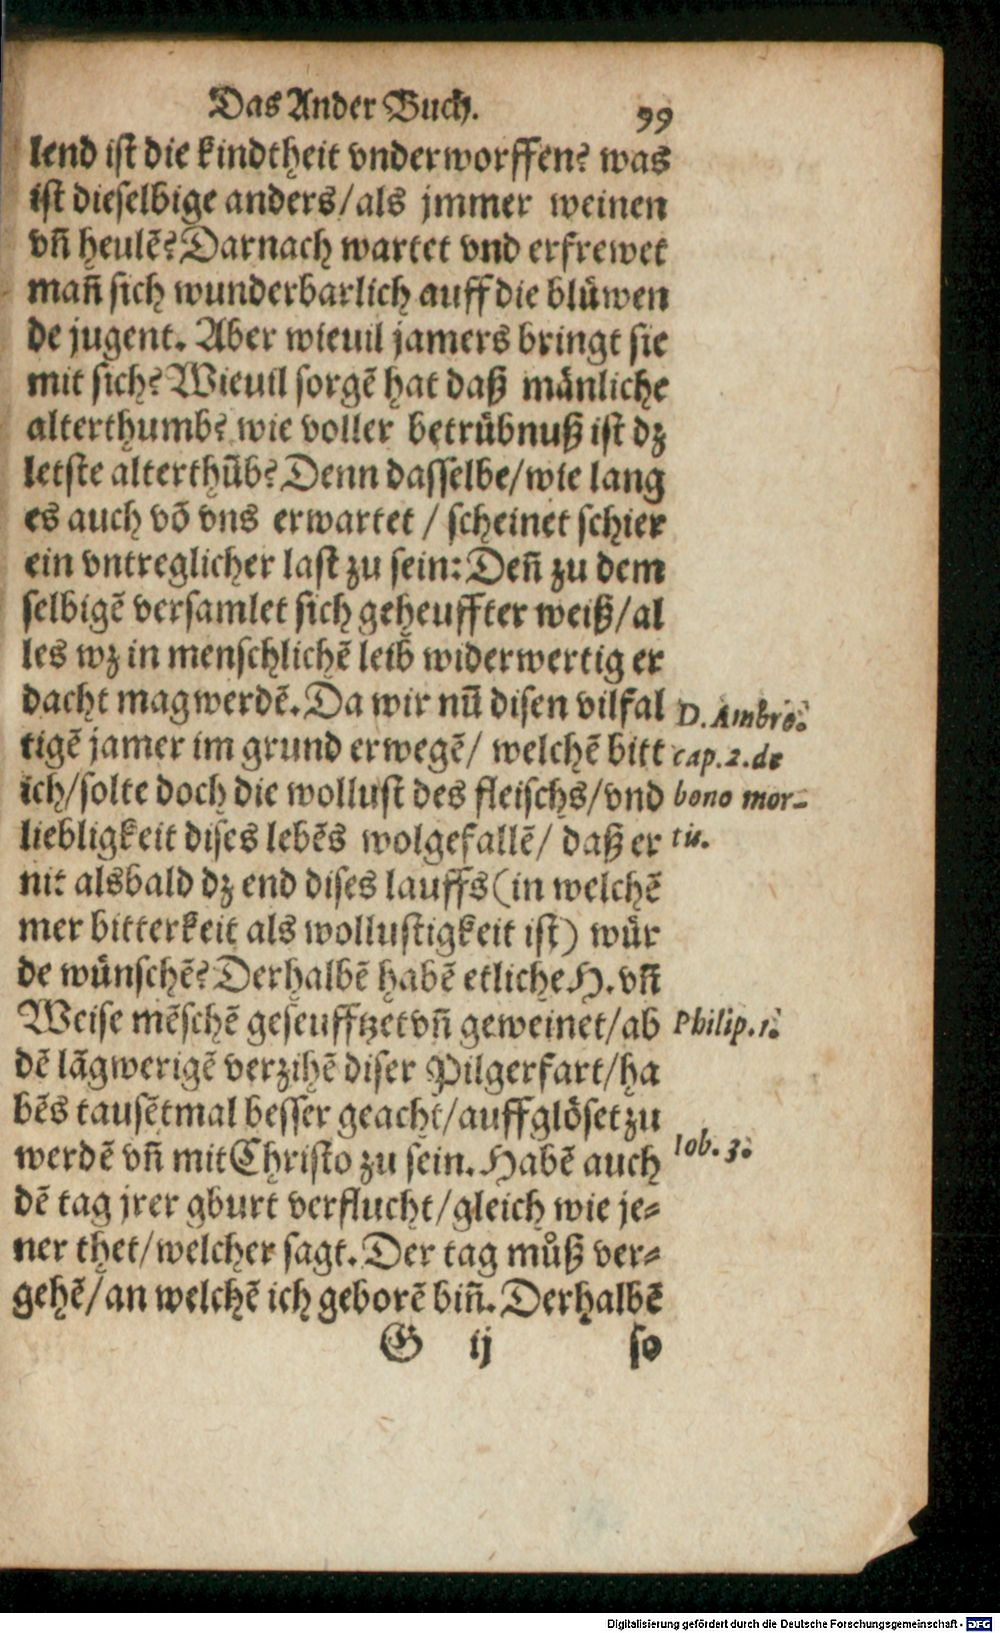 Das Ander Buch. 99
lend ist die kindtheit vnderworffen? was
ist dieselbige anders/als jmmer weinen
vñ heulẽ? Darnach wartet vnd erfrewet
mañ sich wunderbarlich auff die blüwen
de jugent. Aber wieuil jamers bringt sie
mit sich? Wieuil sorgẽ hat daß mänliche
alterthumb? wie voller betrübnuß ist dz
letste alterthũb? Denn dasselbe/wie lang
es auch võ vns erwartet / scheinet schier
ein vntreglicher last zu sein: Deñ zu dem
selbigẽ versamlet sich geheuffter weiß/al
les wz in menschlichẽ leib widerwertig er
dacht mag werdẽ. Da wir nũ disen vilfal
tigẽ jamer im grund erwegẽ/ welchẽ bitt
ich/solte doch die wollust des fleischs/vnd
liebligkeit dises lebẽs wolgefallẽ/ daß er
nit alsbald dz end dises lauffs (in welchẽ
mer bitterkeit als wollustigkeit ist) wür
de wünschẽ? Derhalbẽ habẽ etliche H. vñ
Weise mẽschẽ geseufftzet vñ geweinet/ab
dẽ lãgwerigẽ verzihẽ diser Pilgerfart/ha
bẽs tausẽtmal besser geacht/auffglöset zu
werdẽ vñ mit Christo zu sein. Habẽ auch
dẽ tag jrer gburt verflucht/gleich wie je-
ner thet/welcher sagt. Der tag můß ver-
gehẽ/an welchẽ ich geborẽ biñ. Derhalbẽ
G ij so
D. Ambro.
cap. 2. de
bono mor-
tis.
Philip. 1.
Iob. 3.
Digitalisierung gefördert durch die Deutsche Forschungsgemeinschaft - DFG